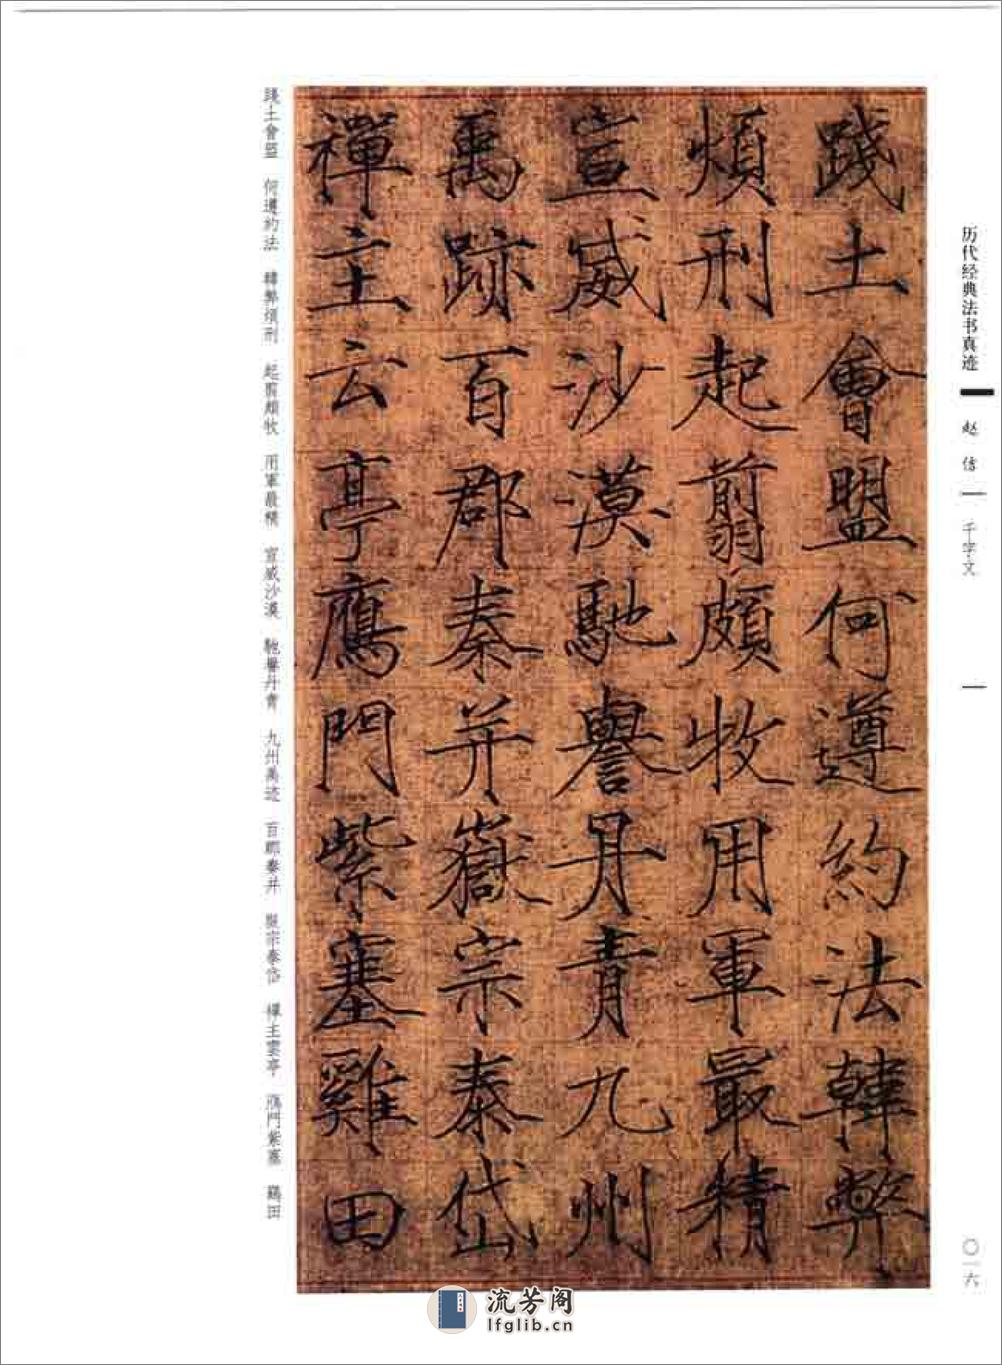 历代经典法书真迹 赵佶 千字文
〇一六
踐土會盟何遵約法韓弊
煩刑起翦頗牧用軍最精
宣威沙漠馳譽丹青九州
禹跡百郡秦并嶽宗泰岱
禪主云亭鴈門紫塞雞田
踐土會盟 何遵約法 韓弊煩刑 起翦頗牧 用軍最精 宣威沙漠 馳譽丹青 九州禹迹 百郡秦并 嶽宗泰岱 禪主雲亭 鴈門紫塞 鷄田
流芳阁
lfglib.cn